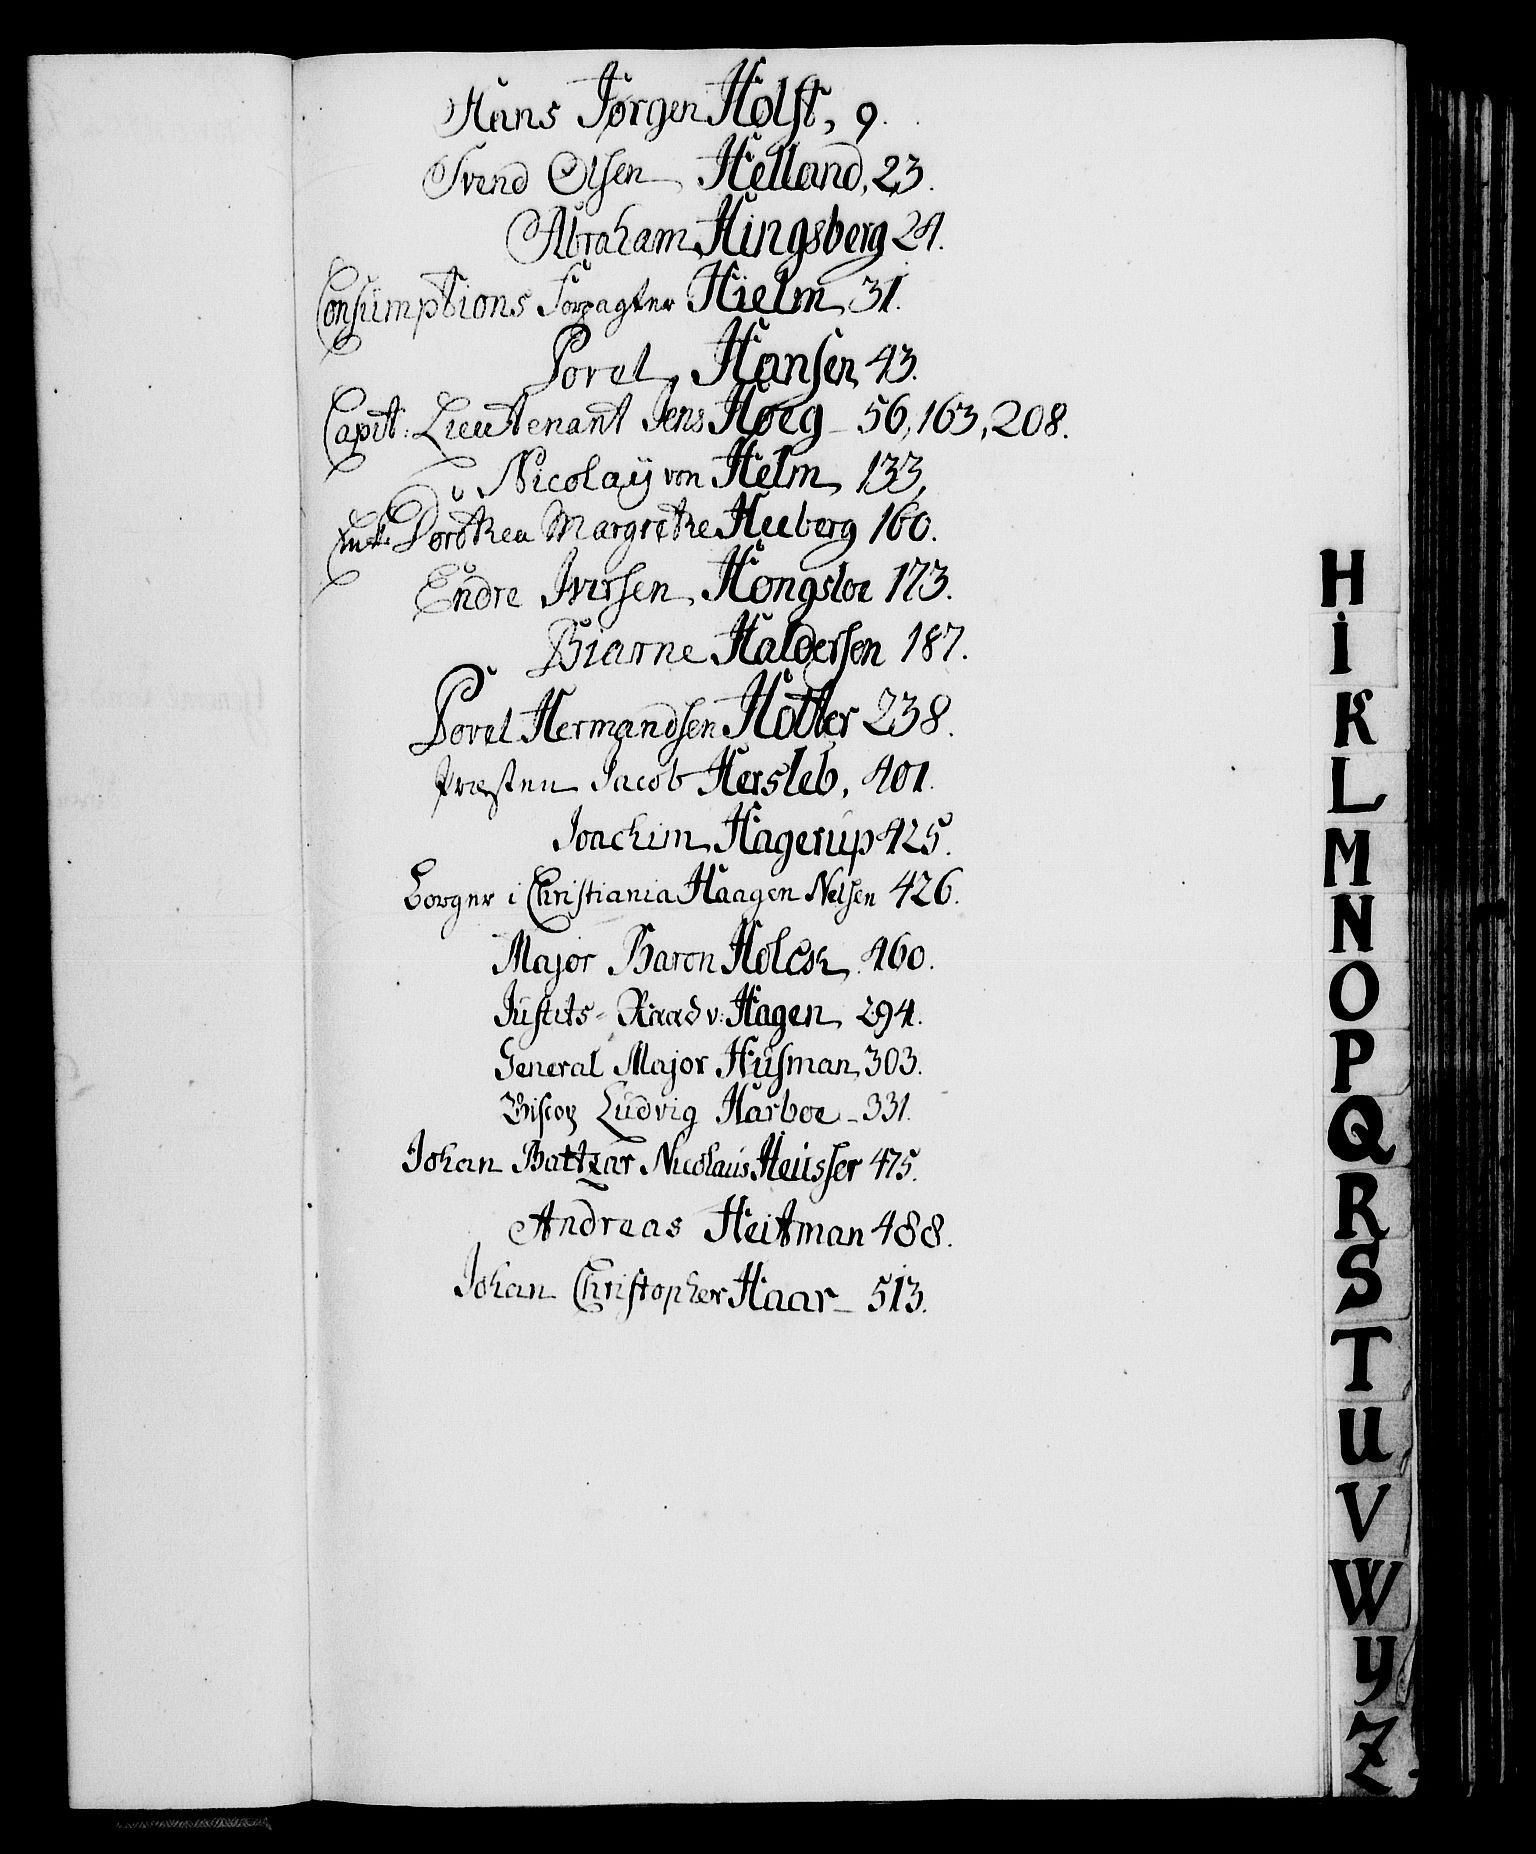 Hans Jørgen Holst, 9.
Svend Olsen Helland, 23.
Abraham Hingsberg 24.
Consumptions Forpagter Hielm 31.
Povel Hansen 43.
Capit: Lieutenant Jens Høeg 56, 163, 208.
Nicolaÿ von Helm 133,
Dorothea Margrethe Huberg 160.
Endre Iversen Hongsloe 173.
Biarne Haldersen 187.
Povel Hermandsen Hotter 238.
Præsten Jacob Hersleb, 401.
Joachim Hagerup 425.
Borger i Christiania Haagen Nelsen 426.
Major Baron Holck 460.
Justits-Raad v: Hagen 294.
General Major Husman 303.
Biscop Ludvig Harboe 331.
Johan Baltzar Nicolaus Heusser 475.
Andreas Heitman 488.
Johan Christopher Haar 513.
H
I
K
L
M
N
O
P
Q
R
S
T
U
V
W
Y
Z